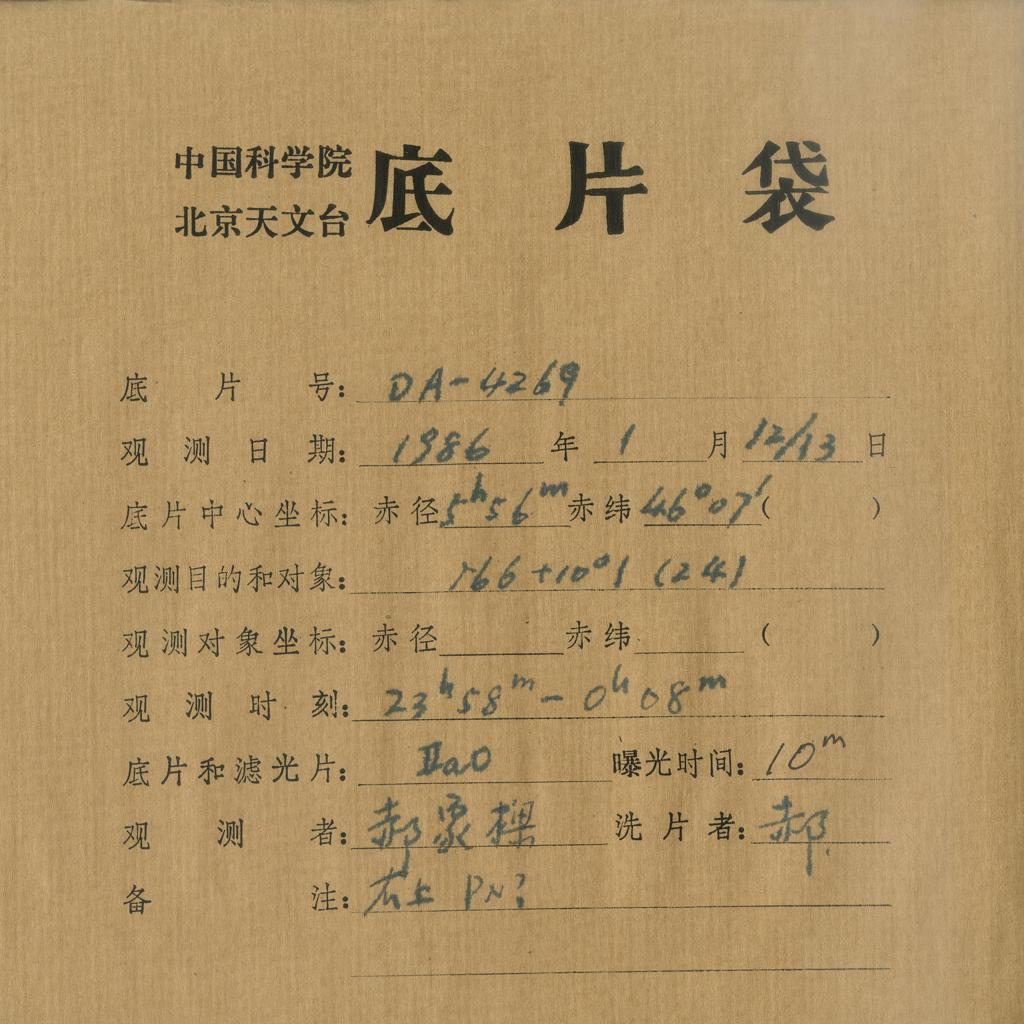 中国科学院
北京天文台
底片袋
底片号: DA-4269
观测日期: 1986 年 1 月 12/13 日
底片中心坐标: 赤径 5ʰ56ᵐ 赤纬 46°07′ ( )
观测目的和对象: 166+10°1 (24)
观测对象坐标: 赤径 赤纬 ( )
观测时刻: 23ʰ58ᵐ - 0ʰ08ᵐ
底片和滤光片: ⅡaO 曝光时间: 10ᵐ
观测者: 郝象樑 洗片者: 郝
备注: 右上 PN?